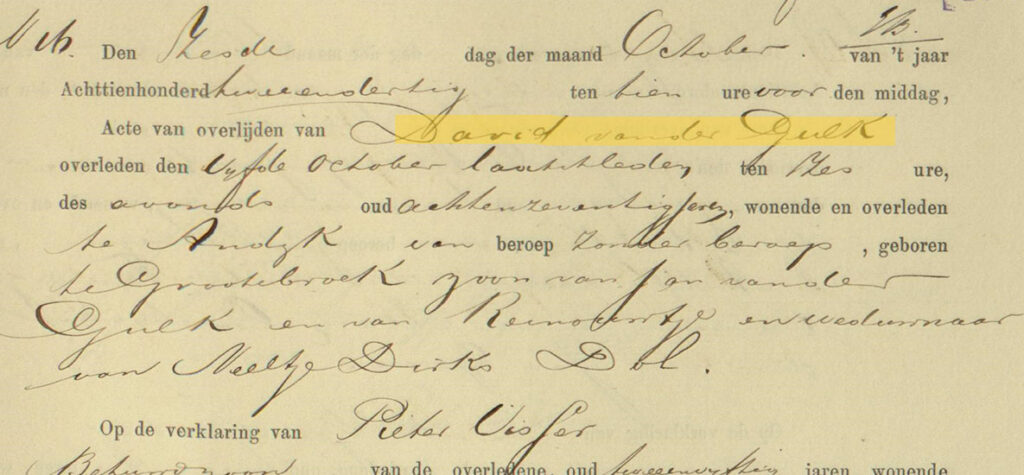 Den Zesde dag der maand October. van 't jaar
Achttienhonderd tweeendertig ten tien ure voor den middag,
Acte van overlijden van David vander Gulk
overleden den Vyfde October laatstleden, ten Zes ure,
des avonds oud achtenzeventig jaren, wonende en overleden
te Andyk van beroep zonder beroep, geboren
te Grootebroek zoon van Jan vander
Gulk en van Reinouwtje en weduwnaar
van Neeltje Dirks Dol.
Op de verklaring van Pieter Visser
van de overledene, oud jaren, wonende